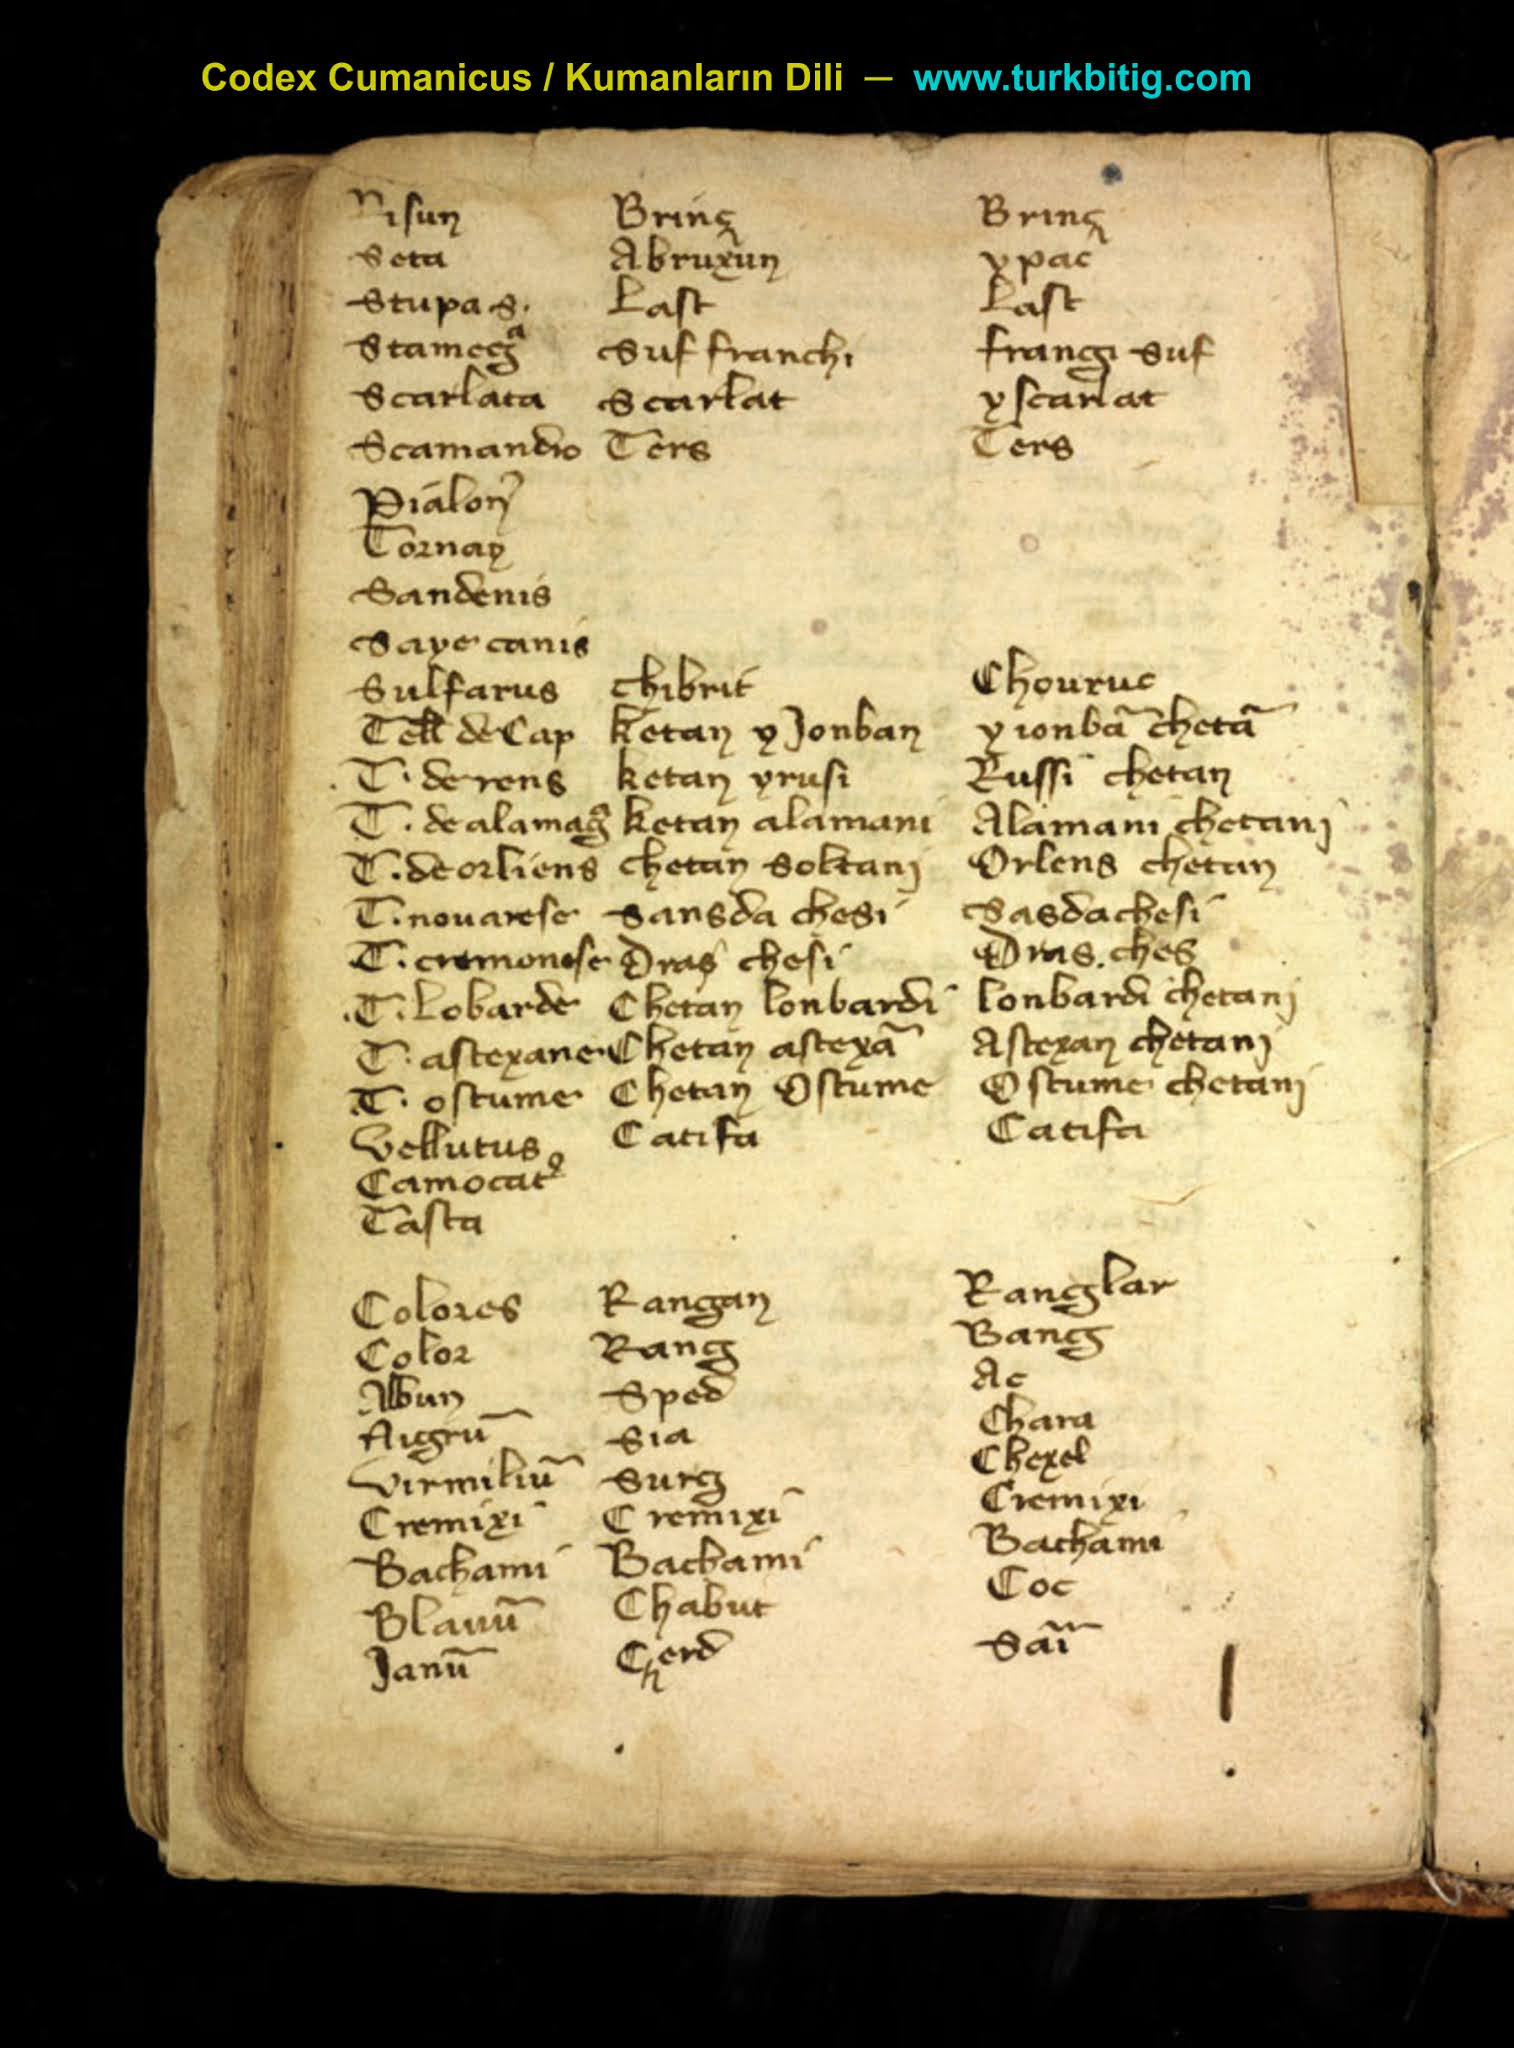 Codex Cumanicus / Kumanların Dili — www.turkbitig.com
Risuɳ Brinç Brinç
Seta Abruxuɳ ypac
Stupa s. Last Last
Stamegᵃ Suf franchi frangi suf
Scarlata Scarlat yscarlat
Scamandio Ters Ters
Pialoɳ
Tornay
Sandenis
Saye canis
Sulfarus chibrit Chouruc
Tell de Cap ketaɳ y Jonbaɳ y ionbã chetã
T. de rens ketaɳ yrusi Russi chetaɳ
T. de alamag̃ ketaɳ alamani Alamani chetanj
T. de orliens chetaɳ Soltanj Orlens chetaɳ
T. nouarese Sansda chesi Sasdachesi
T. cremonese Dras chesi Dras. ches
T. Lobarde Chetaɳ lonbardi lonbardi chetanj
T. astexane Chetaɳ astexã Astexaɳ chetanj
T. ostume Chetaɳ Ostume Ostume chetanj
Vellutus Catifa Catifa
Camocat⁹
Tasta
Colores Rangaɳ Ranglar
Color Rang Bang
Albuɳ Sped Ac
Nigrũ Sia Chara
Virmiliũ Surg Chexel
Cremixi Cremixi Cremixi
Bachami Bachami Bachami
Blauũ Chabut Coc
Janũ Çerd Sari